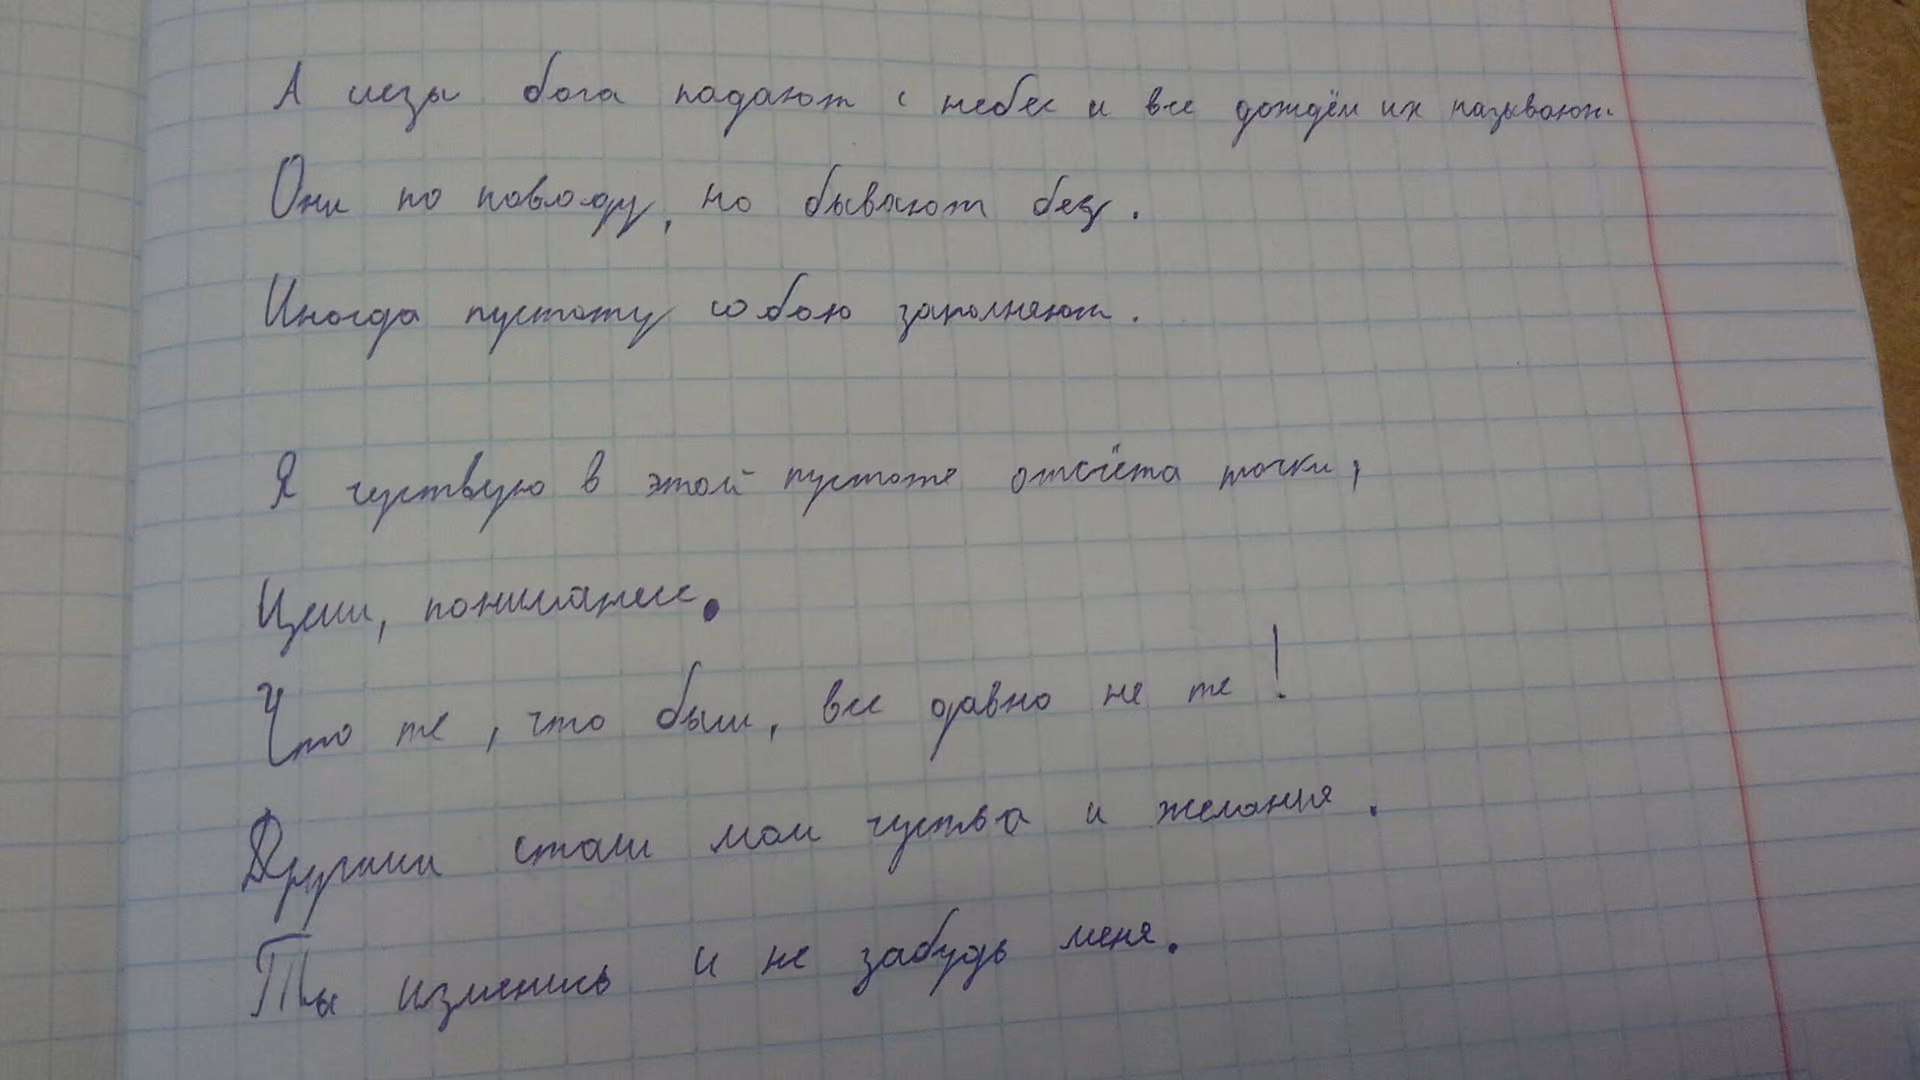 А слёзы бога падают с небес и все дождём их называют.
Они по поводу, но бывают без.
Иногда пустоту собою заполняют.
Я чуствую в этой пустоте отсчёта точки,
Цели, понимание.
Что те, что были, все давно не те!
Другими стали мои чуства и желания.
Ты изменись и не забудь меня.